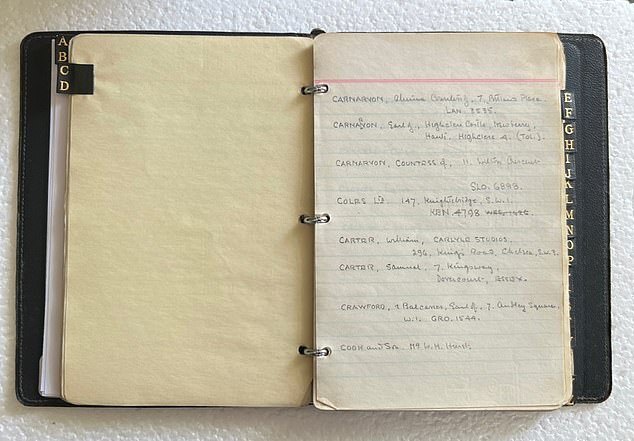 A
B
C
D
CARNARVON, Almina Countess of, 7,
LAN. 3535.
CARNARVON, Earl of, Highclere Castle, Newberry,
Hants. Highclere 4. (Tol.).
CARNARVON, COUNTESS of, 11. Wilton Crescent
SLO. 6898.
COLES Ltd. 147, Knightsbridge, S.W.1.
KEN. 4798
CARTER, William, CARLYLE STUDIOS.
296, Kings Road, Chelsea, S.W.3.
CARTER, Samuel, 7, Kingsway,
Dovercourt, ESSEX.
CRAWFORD, & Balcarres, Earl of, 7. Audley Square,
W.1. GRO. 1544.
COOK and Son.
E
F
G
H
I
J
K
L
M
N
O
P